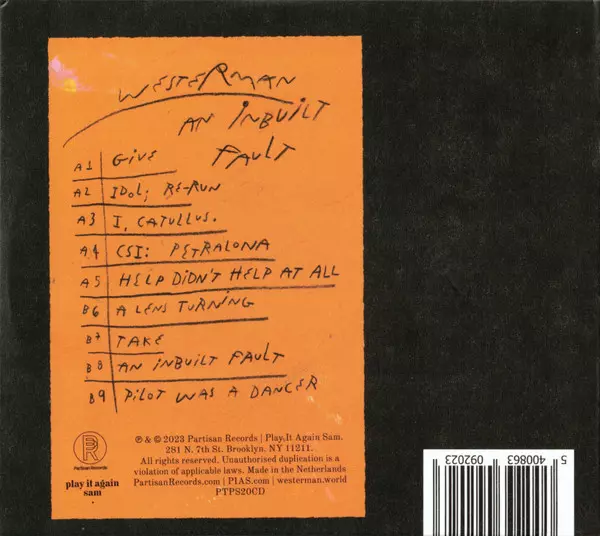 WESTERMAN
AN INBUILT
FAULT
A1 GIVE
A2 IDOL; RE-RUN
A3 I, CATULLUS.
A4 CSI: PETRALONA
A5 HELP DIDN'T HELP AT ALL
B6 A LENS TURNING
B7 TAKE
B8 AN INBUILT FAULT
B9 PILOT WAS A DANCER
Partisan Records
play it again
sam
℗ & © 2023 Partisan Records | Play It Again Sam.
281 N. 7th St. Brooklyn. NY 11211.
All rights reserved. Unauthorised duplication is a
violation of applicable laws. Made in the Netherlands
PartisanRecords.com | PIAS.com | westerman.world
PTPS20CD
5 400863 092023